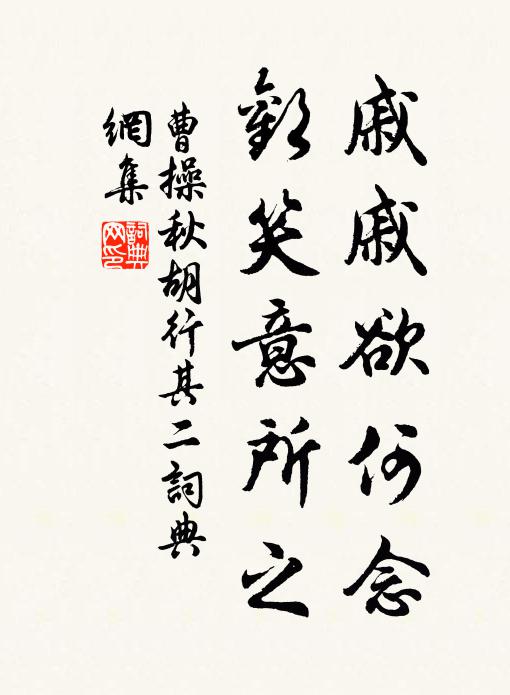 戚戚欲何念
歡笑意所之
曹操秋胡行其二詞典
網集
詞典
网印